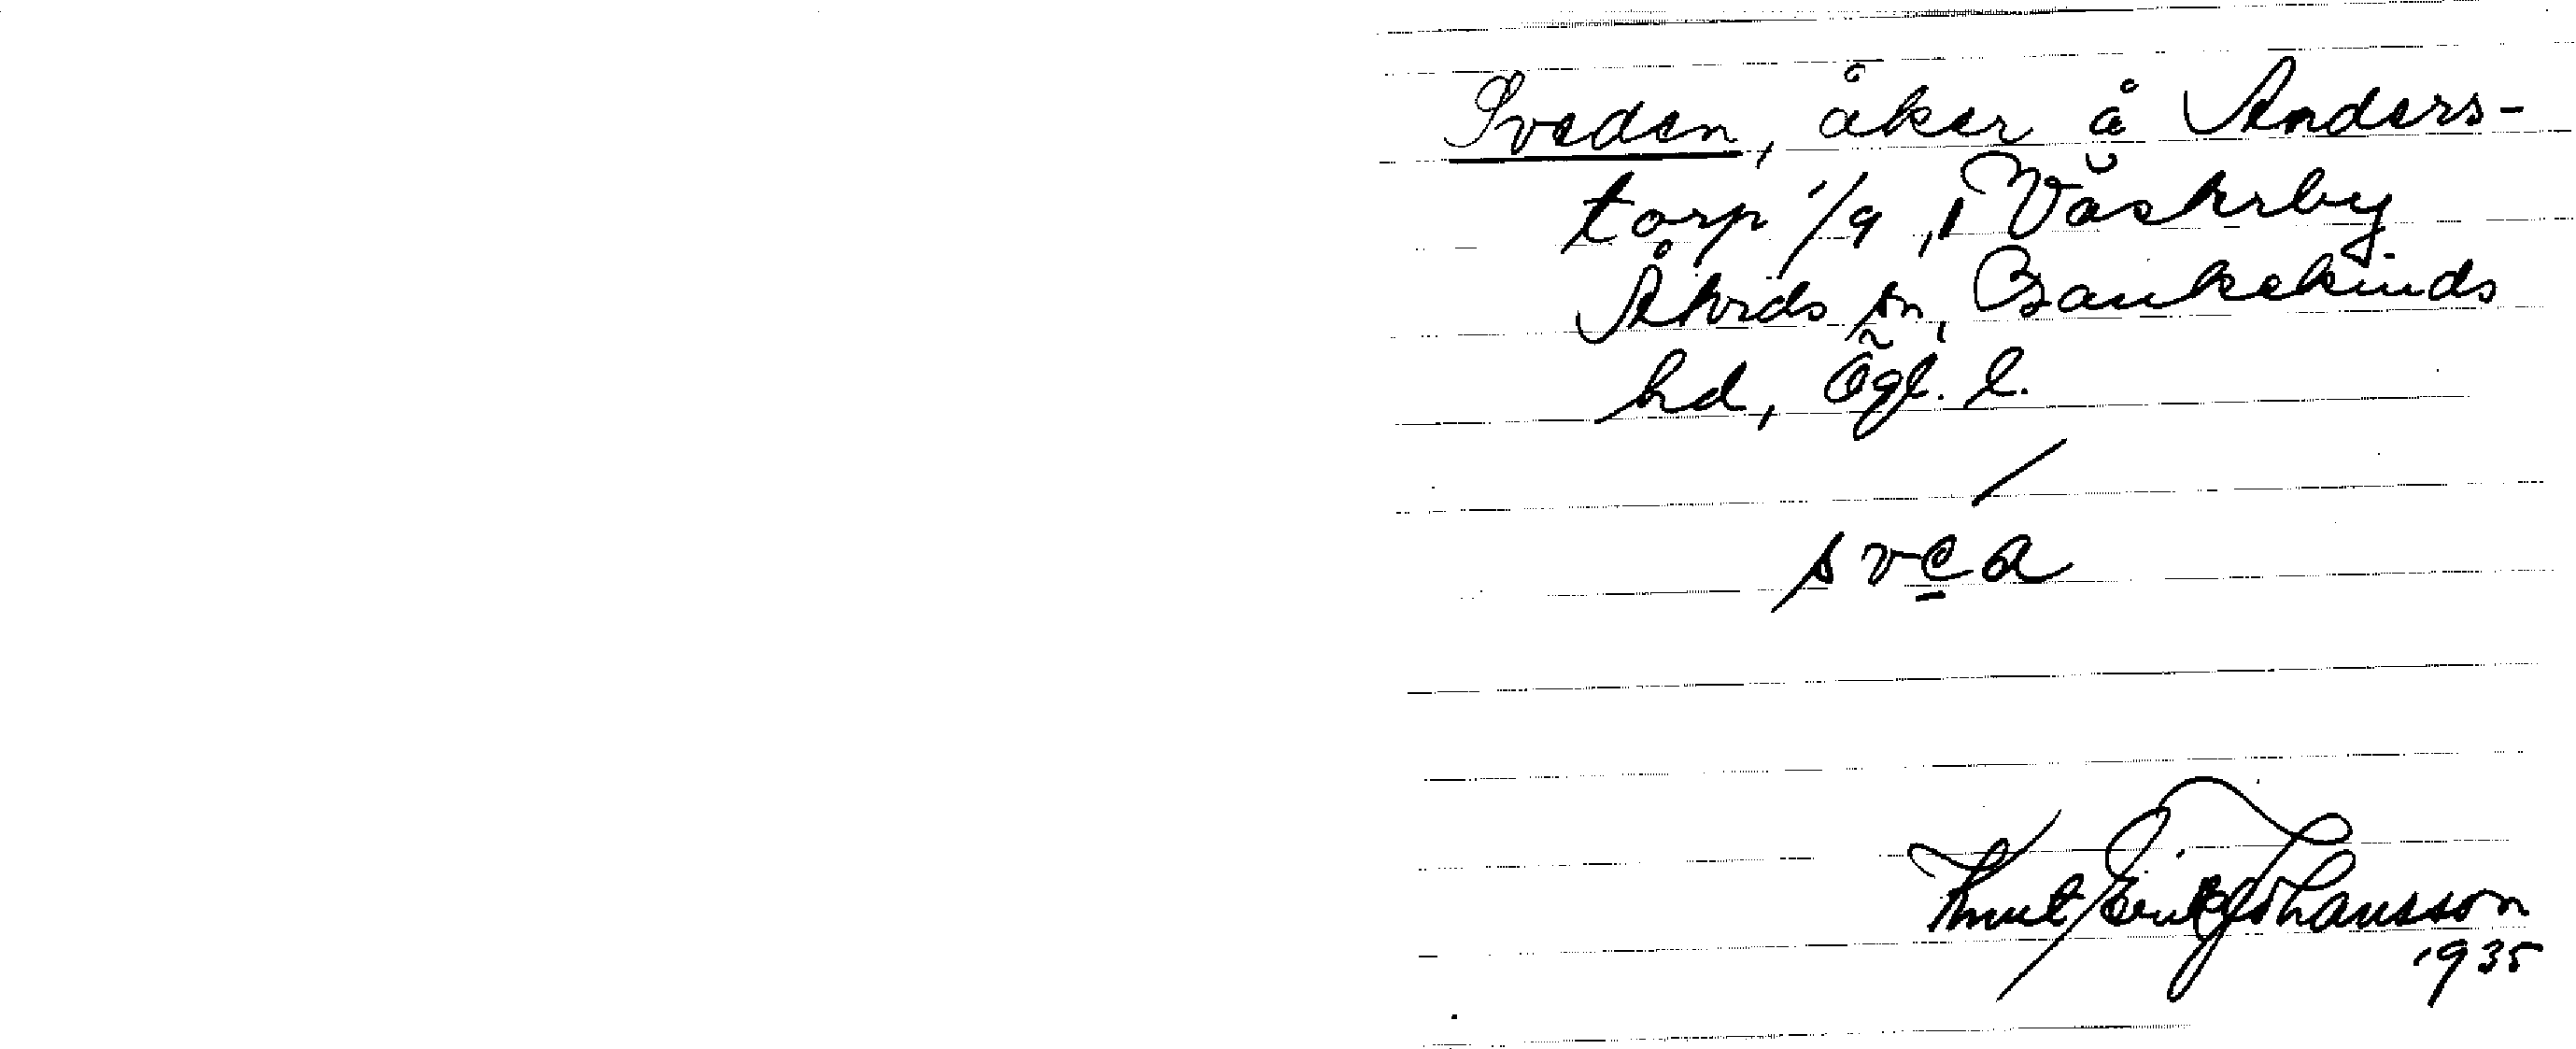 Sveden, åker å Anders-
torp 1/9, Västerby
Åtvids sn, Bankekinds
hd, Ögl. l.
/
svea
Knut Erik Johansson
1935